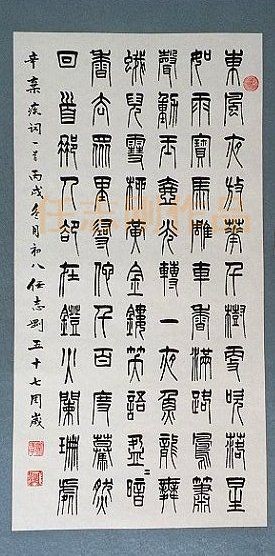 東風夜放華千樹更吹落星
如雨寶馬雕車香滿路鳳簫
聲動玉壺光轉一夜魚龍舞
蛾兒雪柳黃金縷笑語盈〻暗
香去眾裏尋他千百度驀然
回首那人卻在鐙火闌珊處
辛棄疾词一首丙戌冬月初八任志剛五十七周歲
任志刚作品